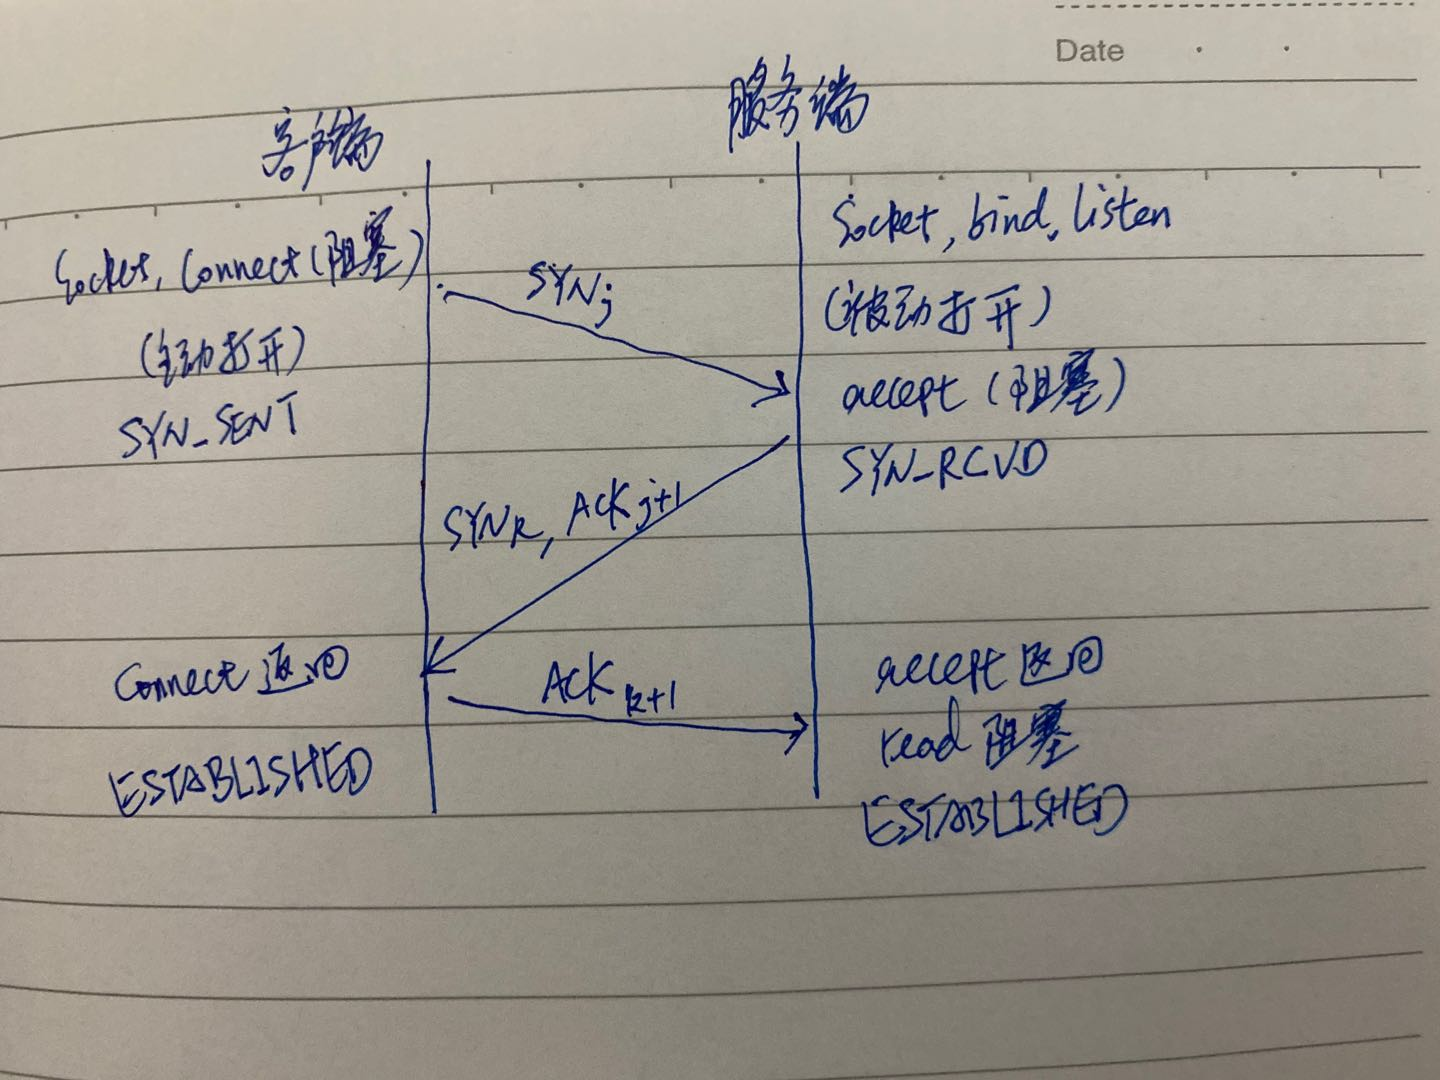 Date
客户端
服务端
Socket, Connect(阻塞)
(主动打开)
SYN_SENT
SYN j
Socket, bind, listen
(被动打开)
accept (阻塞)
SYN_RCVD
SYN k, ACK j+1
Connect 返回
ESTABLISHED
ACK k+1
accept 返回
read 阻塞
ESTABLISHED